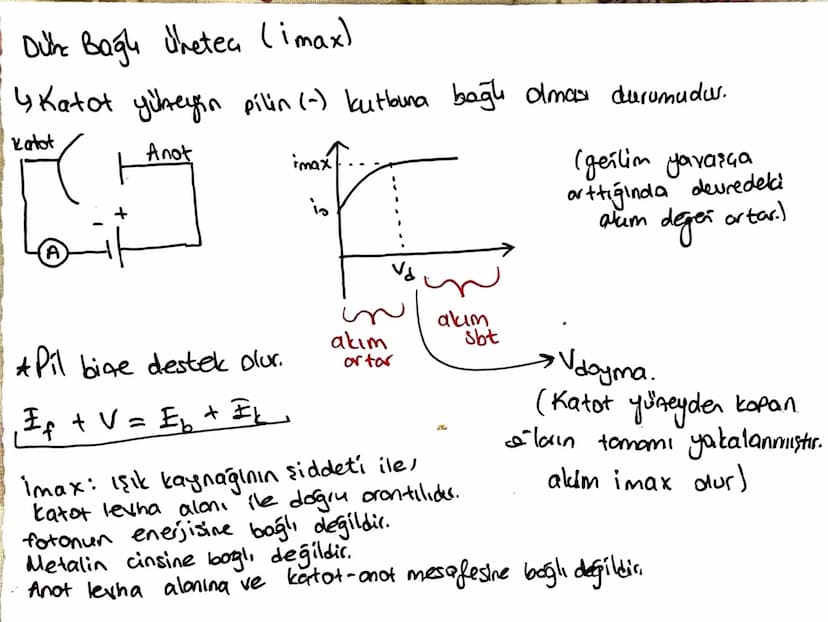 Düz Bağlı Üreteç (imax)
↳ Katot yüzeyin pilin (-) kutbuna bağlı olması durumudur.
Katot
Anot
- +
A
imax
i₀
Vd
akım artar
akım sbt
(gerilim yavaşça
arttığında devredeki
akım değeri artar.)
* Pil bize destek olur.
Ef + V = Eb + Ek
Vdoyma.
(Katot yüzeyden kopan
e⁻ların tamamı yakalanmıştır.
akım imax olur)
imax: Işık kaynağının şiddeti ile,
katot levha alanı ile doğru orantılıdır.
fotonun enerjisine bağlı değildir.
Metalin cinsine bağlı değildir.
Anot levha alanına ve katot-anot mesafesine bağlı değildir.